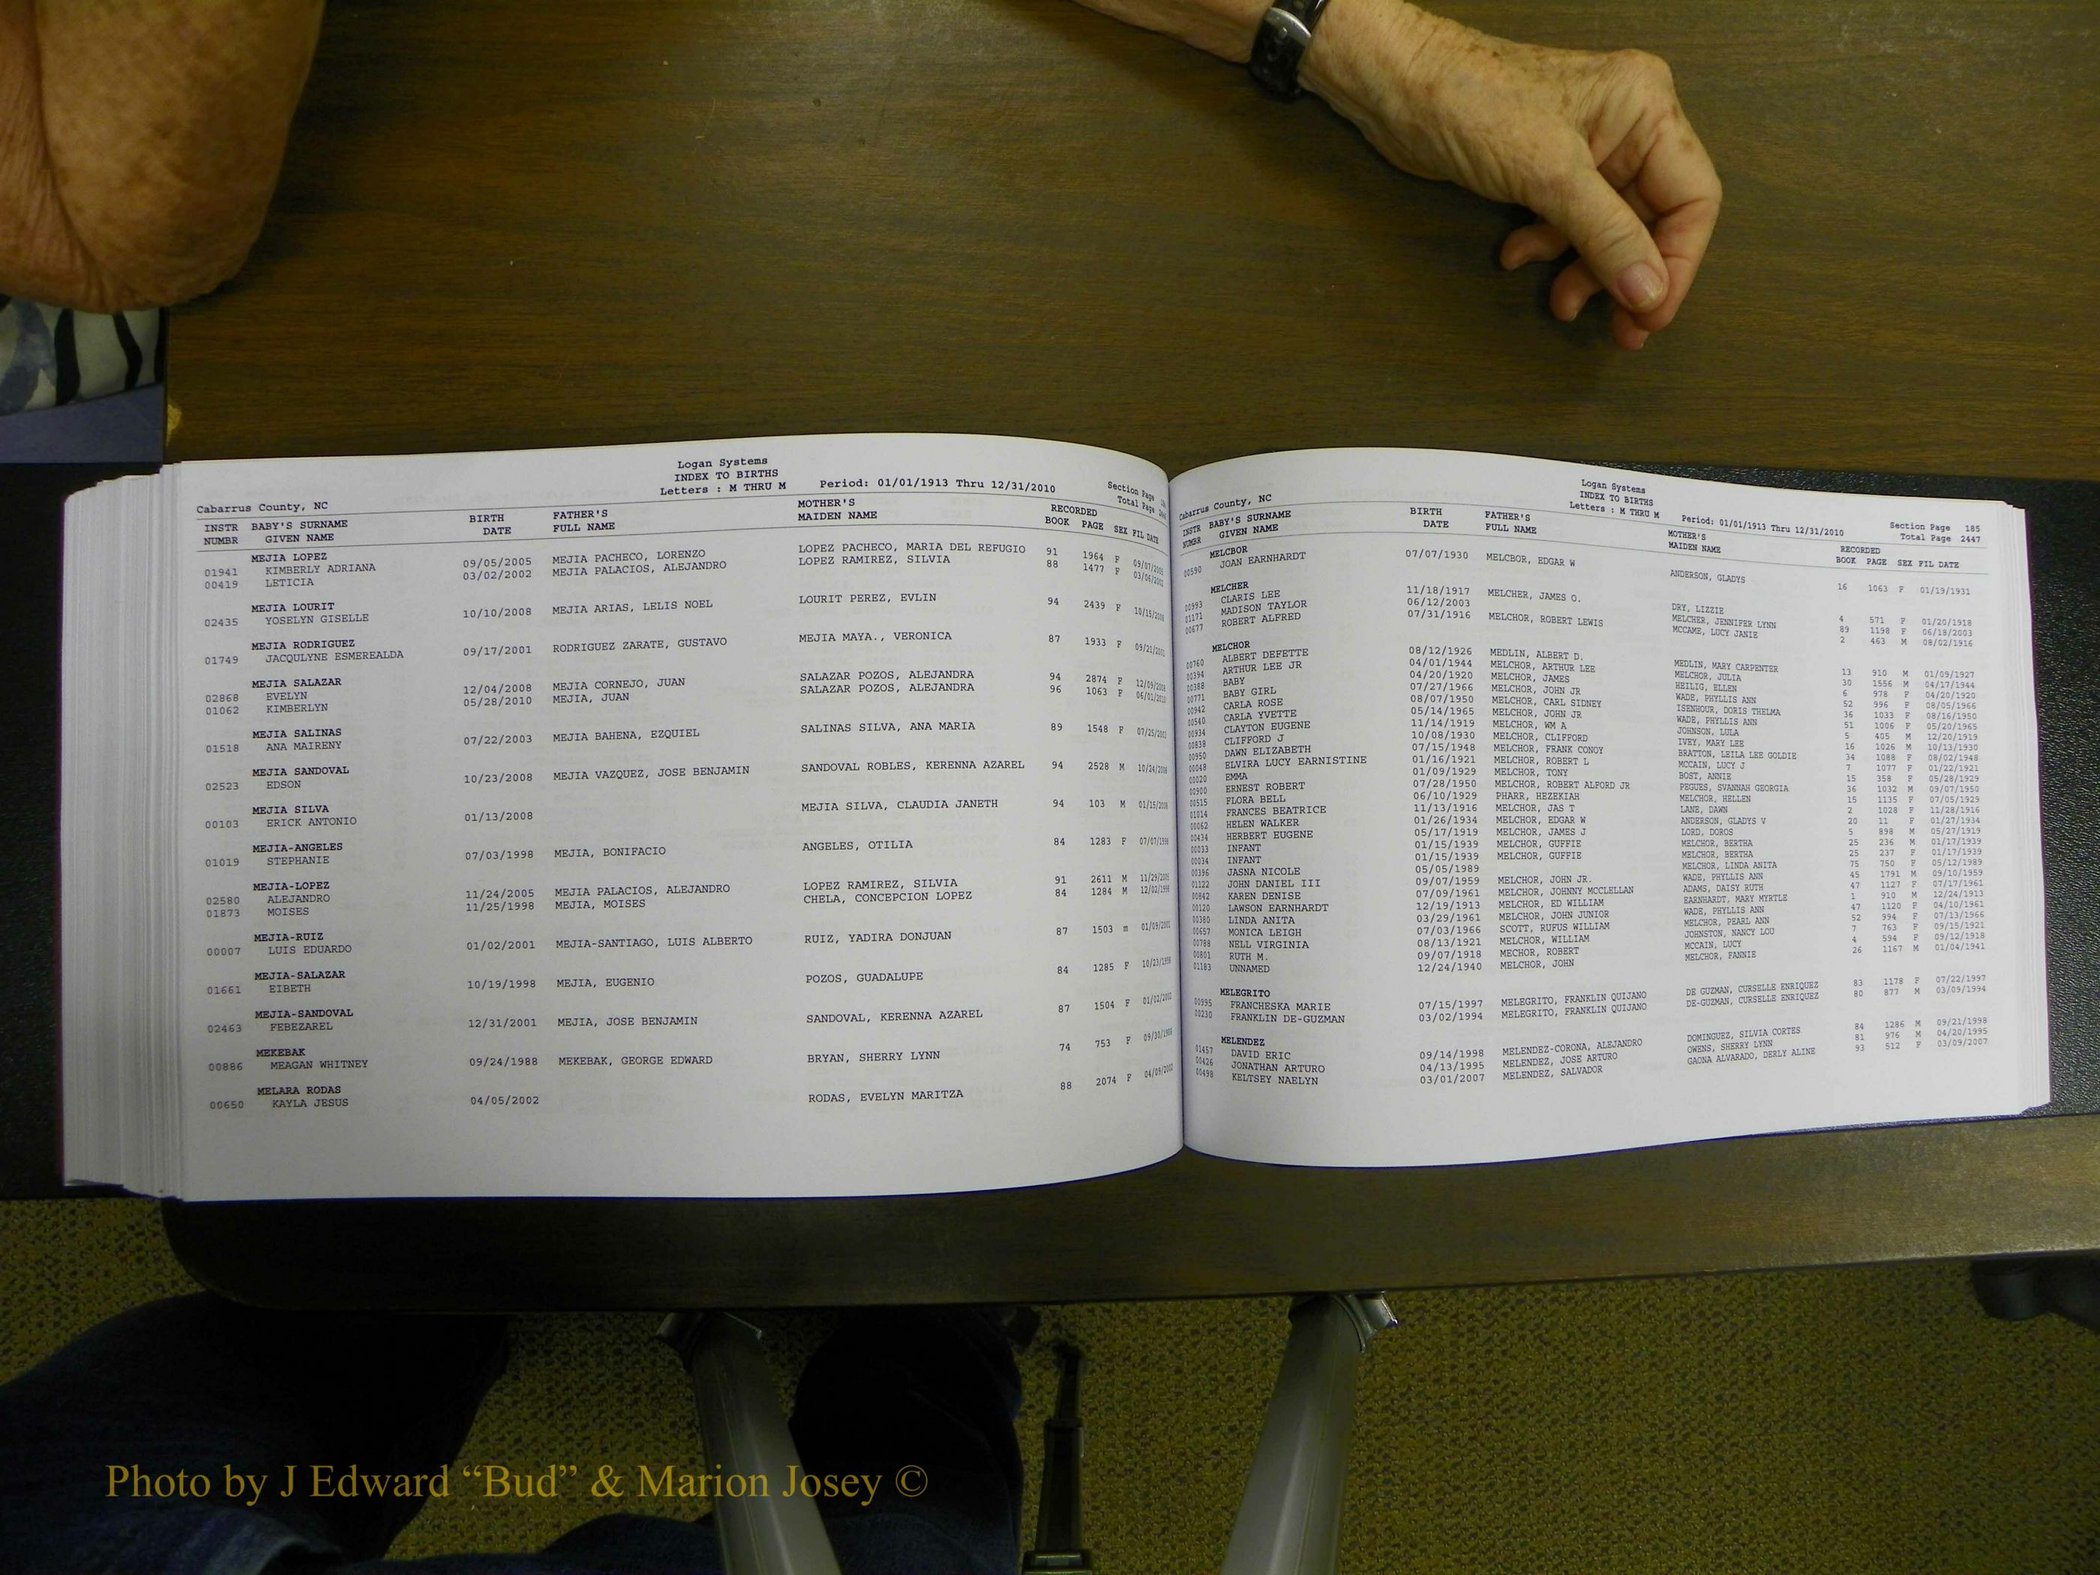 Logan Systems
INDEX TO BIRTHS
Letters : M THRU M Period: 01/01/1913 Thru 12/31/2010 Section Page
Cabarrus County, NC Total Page
INSTR BABY'S SURNAME BIRTH FATHER'S MOTHER'S RECORDED
NUMBR GIVEN NAME DATE FULL NAME MAIDEN NAME BOOK PAGE SEX FIL DATE
MEJIA LOPEZ
01941 KIMBERLY ADRIANA 09/05/2005 MEJIA PACHECO, LORENZO LOPEZ PACHECO, MARIA DEL REFUGIO 91 1964 F 09/07/2005
00419 LETICIA 03/02/2002 MEJIA PALACIOS, ALEJANDRO LOPEZ RAMIREZ, SILVIA 88 1477 F 03/06/2002
MEJIA LOURIT
02435 YOSELYN GISELLE 10/10/2008 MEJIA ARIAS, LELIS NOEL LOURIT PEREZ, EVLIN 94 2439 F 10/15/2008
MEJIA RODRIGUEZ
01749 JACQULYNE ESMEREALDA 09/17/2001 RODRIGUEZ ZARATE, GUSTAVO MEJIA MAYA., VERONICA 87 1933 F 09/21/2001
MEJIA SALAZAR
02868 EVELYN 12/04/2008 MEJIA CORNEJO, JUAN SALAZAR POZOS, ALEJANDRA 94 2874 F 12/09/2008
01062 KIMBERLYN 05/28/2010 MEJIA, JUAN SALAZAR POZOS, ALEJANDRA 96 1063 F 06/01/2010
MEJIA SALINAS
01518 ANA MAIRENY 07/22/2003 MEJIA BAHENA, EZQUIEL SALINAS SILVA, ANA MARIA 89 1548 F 07/25/2003
MEJIA SANDOVAL
02523 EDSON 10/23/2008 MEJIA VAZQUEZ, JOSE BENJAMIN SANDOVAL ROBLES, KERENNA AZAREL 94 2528 M 10/24/2008
MEJIA SILVA
00103 ERICK ANTONIO 01/13/2008 MEJIA SILVA, CLAUDIA JANETH 94 103 M 01/15/2008
MEJIA-ANGELES
01019 STEPHANIE 07/03/1998 MEJIA, BONIFACIO ANGELES, OTILIA 84 1283 F 07/07/1998
MEJIA-LOPEZ
02580 ALEJANDRO 11/24/2005 MEJIA PALACIOS, ALEJANDRO LOPEZ RAMIREZ, SILVIA 91 2611 M 11/29/2005
01873 MOISES 11/25/1998 MEJIA, MOISES CHELA, CONCEPCION LOPEZ 84 1284 M 12/02/1998
MEJIA-RUIZ
00007 LUIS EDUARDO 01/02/2001 MEJIA-SANTIAGO, LUIS ALBERTO RUIZ, YADIRA DONJUAN 87 1503 m 01/09/2001
MEJIA-SALAZAR
01661 EIBETH 10/19/1998 MEJIA, EUGENIO POZOS, GUADALUPE 84 1285 F 10/23/1998
MEJIA-SANDOVAL
02463 FEBEZAREL 12/31/2001 MEJIA, JOSE BENJAMIN SANDOVAL, KERENNA AZAREL 87 1504 F 01/02/2002
MEKEBAK
00886 MEAGAN WHITNEY 09/24/1988 MEKEBAK, GEORGE EDWARD BRYAN, SHERRY LYNN 74 753 F 09/30/1988
MELARA RODAS
00650 KAYLA JESUS 04/05/2002 RODAS, EVELYN MARITZA 88 2074 F 04/09/2002
Logan Systems
INDEX TO BIRTHS
Letters : M THRU M Period: 01/01/1913 Thru 12/31/2010 Section Page 185
Cabarrus County, NC Total Page 2447
INSTR BABY'S SURNAME BIRTH FATHER'S MOTHER'S RECORDED
NUMBR GIVEN NAME DATE FULL NAME MAIDEN NAME BOOK PAGE SEX FIL DATE
MELCBOR
00590 JOAN EARNHARDT 07/07/1930 MELCBOR, EDGAR W ANDERSON, GLADYS 16 1063 F 01/19/1931
MELCHER
00993 CLARIS LEE 11/18/1917 MELCHER, JAMES O. DRY, LIZZIE 4 571 F 01/20/1918
01171 MADISON TAYLOR 06/12/2003 MELCHER, JENNIFER LYNN 89 1198 F 06/18/2003
00677 ROBERT ALFRED 07/31/1916 MELCHOR, ROBERT LEWIS MCCAME, LUCY JANIE 2 463 M 08/02/1916
MELCHOR
00760 ALBERT DEFETTE 08/12/1926 MEDLIN, ALBERT D. MEDLIN, MARY CARPENTER 13 910 M 01/09/1927
00394 ARTHUR LEE JR 04/01/1944 MELCHOR, ARTHUR LEE MELCHOR, JULIA 30 1556 M 04/17/1944
00388 BABY 04/20/1920 MELCHOR, JAMES HEILIG, ELLEN 6 978 F 04/20/1920
00771 BABY GIRL 07/27/1966 MELCHOR, JOHN JR WADE, PHYLLIS ANN 52 996 F 08/05/1966
00942 CARLA ROSE 08/07/1950 MELCHOR, CARL SIDNEY ISENHOUR, DORIS THELMA 36 1033 F 08/16/1950
00540 CARLA YVETTE 05/14/1965 MELCHOR, JOHN JR WADE, PHYLLIS ANN 51 1006 F 05/20/1965
00934 CLAYTON EUGENE 11/14/1919 MELCHOR, WM A JOHNSON, LULA 5 405 M 12/20/1919
00838 CLIFFORD J 10/08/1930 MELCHOR, CLIFFORD IVEY, MARY LEE 16 1026 M 10/13/1930
00950 DAWN ELIZABETH 07/15/1948 MELCHOR, FRANK CONOY BRATTON, LEILA LEE GOLDIE 34 1088 F 08/02/1948
00048 ELVIRA LUCY EARNISTINE 01/16/1921 MELCHOR, ROBERT L MCCAIN, LUCY J 7 1077 F 01/22/1921
00020 EMMA 01/09/1929 MELCHOR, TONY BOST, ANNIE 15 358 F 05/28/1929
00900 ERNEST ROBERT 07/28/1950 MELCHOR, ROBERT ALFORD JR PEGUES, SVANNAH GEORGIA 36 1032 M 09/07/1950
00515 FLORA BELL 06/10/1929 PHARR, HEZEKIAH MELCHOR, HELLEN 15 1135 F 07/05/1929
01014 FRANCES BEATRICE 11/13/1916 MELCHOR, JAS T LANE, DAWN 2 1028 F 11/28/1916
00062 HELEN WALKER 01/26/1934 MELCHOR, EDGAR W ANDERSON, GLADYS V 20 11 F 01/27/1934
00434 HERBERT EUGENE 05/17/1919 MELCHOR, JAMES J LORD, DOROS 5 898 M 05/27/1919
00033 INFANT 01/15/1939 MELCHOR, GUFFIE MELCHOR, BERTHA 25 236 M 01/17/1939
00034 INFANT 01/15/1939 MELCHOR, GUFFIE MELCHOR, BERTHA 25 237 F 01/17/1939
00396 JASNA NICOLE 05/05/1989 MELCHOR, LINDA ANITA 75 750 F 05/12/1989
01122 JOHN DANIEL III 09/07/1959 MELCHOR, JOHN JR. WADE, PHYLLIS ANN 45 1791 M 09/10/1959
00842 KAREN DENISE 07/09/1961 MELCHOR, JOHNNY MCCLELLAN ADAMS, DAISY RUTH 47 1127 F 07/17/1961
00120 LAWSON EARNHARDT 12/19/1913 MELCHOR, ED WILLIAM EARNHARDT, MARY MYRTLE 1 910 M 12/24/1913
00380 LINDA ANITA 03/29/1961 MELCHOR, JOHN JUNIOR WADE, PHYLLIS ANN 47 1120 F 04/10/1961
00657 MONICA LEIGH 07/03/1966 SCOTT, RUFUS WILLIAM MELCHOR, PEARL ANN 52 994 F 07/13/1966
00788 NELL VIRGINIA 08/13/1921 MELCHOR, WILLIAM JOHNSTON, NANCY LOU 7 763 F 09/15/1921
00801 RUTH M. 09/07/1918 MECHOR, ROBERT MCCAIN, LUCY 4 594 F 09/12/1918
01183 UNNAMED 12/24/1940 MELCHOR, JOHN MELCHOR, FANNIE 26 1167 M 01/04/1941
MELEGRITO
00995 FRANCHESKA MARIE 07/15/1997 MELEGRITO, FRANKLIN QUIJANO DE GUZMAN, CURSELLE ENRIQUEZ 83 1178 F 07/22/1997
00230 FRANKLIN DE-GUZMAN 03/02/1994 MELEGRITO, FRANKLIN QUIJANO DE-GUZMAN, CURSELLE ENRIQUEZ 80 877 M 03/09/1994
MELENDEZ
01457 DAVID ERIC 09/14/1998 MELENDEZ-CORONA, ALEJANDRO DOMINGUEZ, SILVIA CORTES 84 1286 M 09/21/1998
00426 JONATHAN ARTURO 04/13/1995 MELENDEZ, JOSE ARTURO OWENS, SHERRY LYNN 81 976 M 04/20/1995
00498 KELTSEY NAELYN 03/01/2007 MELENDEZ, SALVADOR GAONA ALVARADO, DERLY ALINE 93 512 F 03/09/2007
Photo by J Edward “Bud” & Marion Josey ©